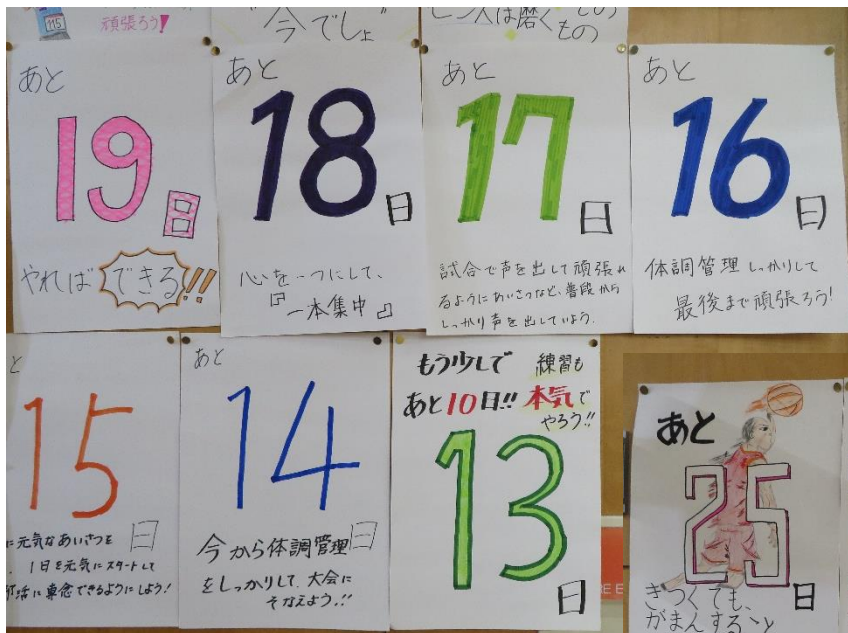 頑張ろう!
115
今でしょ
は磨く
もの
あと
19
日
やれば できる!!
あと
18
日
心を一つにして、
『一本集中』
あと
17
日
試合で声を出して頑張れ
るようにあいさつなど、普段から
しっかり声を出していよう.
あと
16
日
体調管理しっかりして
最後まで頑張ろう!
と
15
日
に元気なあいさつを
1日を元気にスタートして
部活に専念できるようにしよう!
あと
14
日
今から体調管理
をしっかりして、大会に
そなえよう.!!
もう少しで 練習も
あと10日!! 本気で
やろう!!
13
日
あと
25
日
きつくても、
がまんする